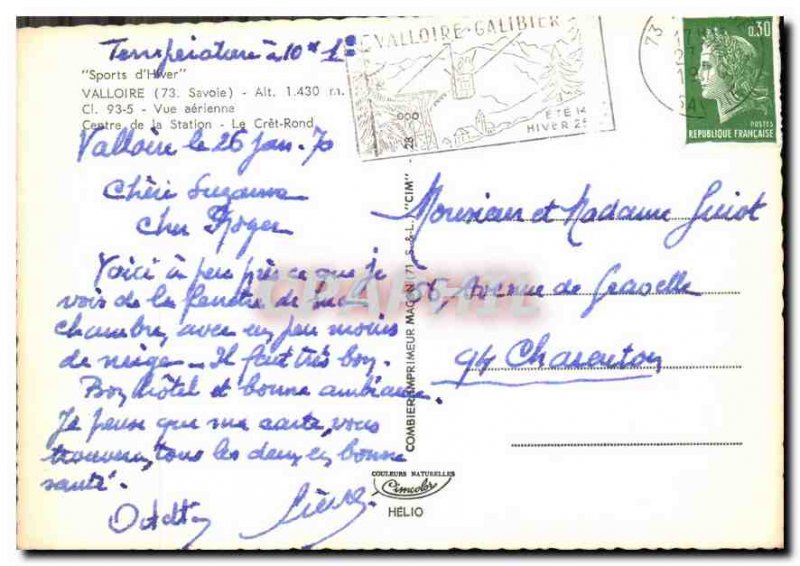 Température à 10
"Sports d'Hiver"
VALLOIRE (73. Savoie) - Alt. 1.430 m.
Cl. 93-5 - Vue aérienne
Centre de la Station - Le Crêt-Rond
Valloire le 26 Jan. 70
Chère Suzanne
Cher Roger
Voici à peu près ce que je
vois de la fenêtre de ma
chambre, avec un peu moins
de neige - Il fait très bon.
Bon hôtel et bonne ambiance.
Je pense que ma carte, vous
trouvera, tous les deux en bonne
santé.
VALLOIRE-GALIBIER
ÉTÉ
HIVER
73
17
SAV
0,30
POSTES
REPUBLIQUE FRANÇAISE
COMBIER IMPRIMEUR MACON (71. S.-&-L.) "CIM"
Monsieur et Madame Guiot
56, Avenue de Gravelle
94 Charenton
COULEURS NATURELLES
Cimcolor
HÉLIO